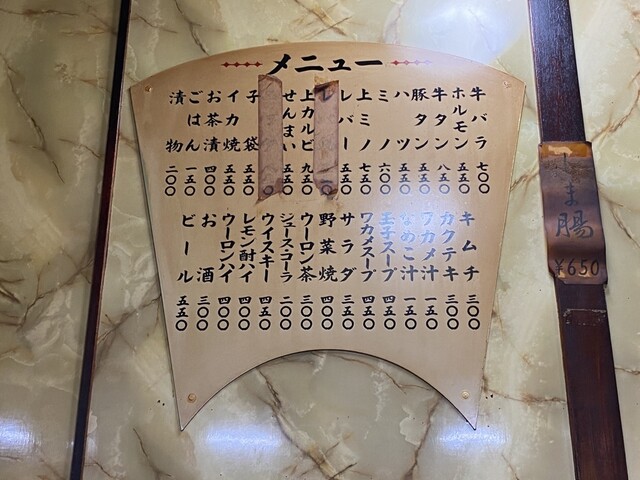 メニュー
牛バラ 七〇〇
ホルモン 五五〇
牛タン 八五〇
豚タン 五五〇
ハツ 五五〇
ミノ 六〇〇
上ミノ 七五〇
レバー 五五〇
上カルビ 九五〇
せんまい 五五〇
子袋 五五〇
イカ焼 五五〇
お茶漬 四〇〇
ごはん 一五〇
漬物 二〇〇
キムチ 三〇〇
カクテキ 三〇〇
ワカメ汁 一五〇
なめこ汁 一五〇
玉子スープ 四五〇
ワカメスープ 四五〇
サラダ 三五〇
野菜焼 四〇〇
ウーロン茶 三〇〇
ジュース・コーラ 二〇〇
ウイスキー 四五〇
レモン酎ハイ 四〇〇
ウーロンハイ 四〇〇
お酒 三〇〇
ビール 五五〇
しま腸
¥650